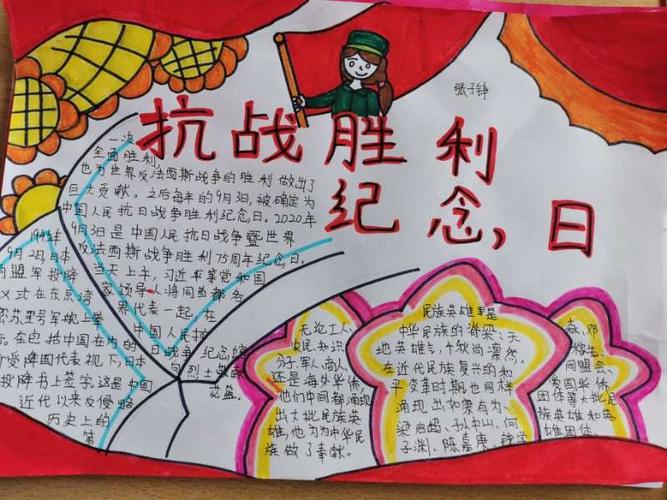 张子铮
抗战胜利
纪念,日
1945年
9月2日,日本
向盟军投降
仪式在东京湾
密苏里号军舰上举
行。在包括中国在内的
受降国代表视下,日本
投降书上签字。这是中国
近代以来反侵略
历史上的
第
一次
全面胜利,
也为世界反法西斯战争的胜利做出了
巨大贡献。之后每年的9月3日,被确定为
中国人民抗日战争胜利纪念日。2020年
9月3日是中国人民抗日战争暨世界
反法西斯战争胜利75周年纪念日。
当天上午,习近平等党和国
家领导人将同首都各
界代表一起,在
中国人民抗
日战争纪念馆
向烈士敬献
花篮。
无论工人、
农民、知识
分子、军人、商人,
还是海外华侨,
他们中间都涌现
出大批民族英
雄,也为为中华民
族做了奉献。
民族英雄是
中华民族的脊梁、天
地英雄气,千秋尚凛然。
在近代民族复兴的和
平变革时期也同样
涌现出如粟有为、
梁启超、孙中山、何
子渊、陈嘉庚、钱学
森、邓
稼先、
同盟会、
爱国华侨
团体等大批民
族英雄和英
雄团体。